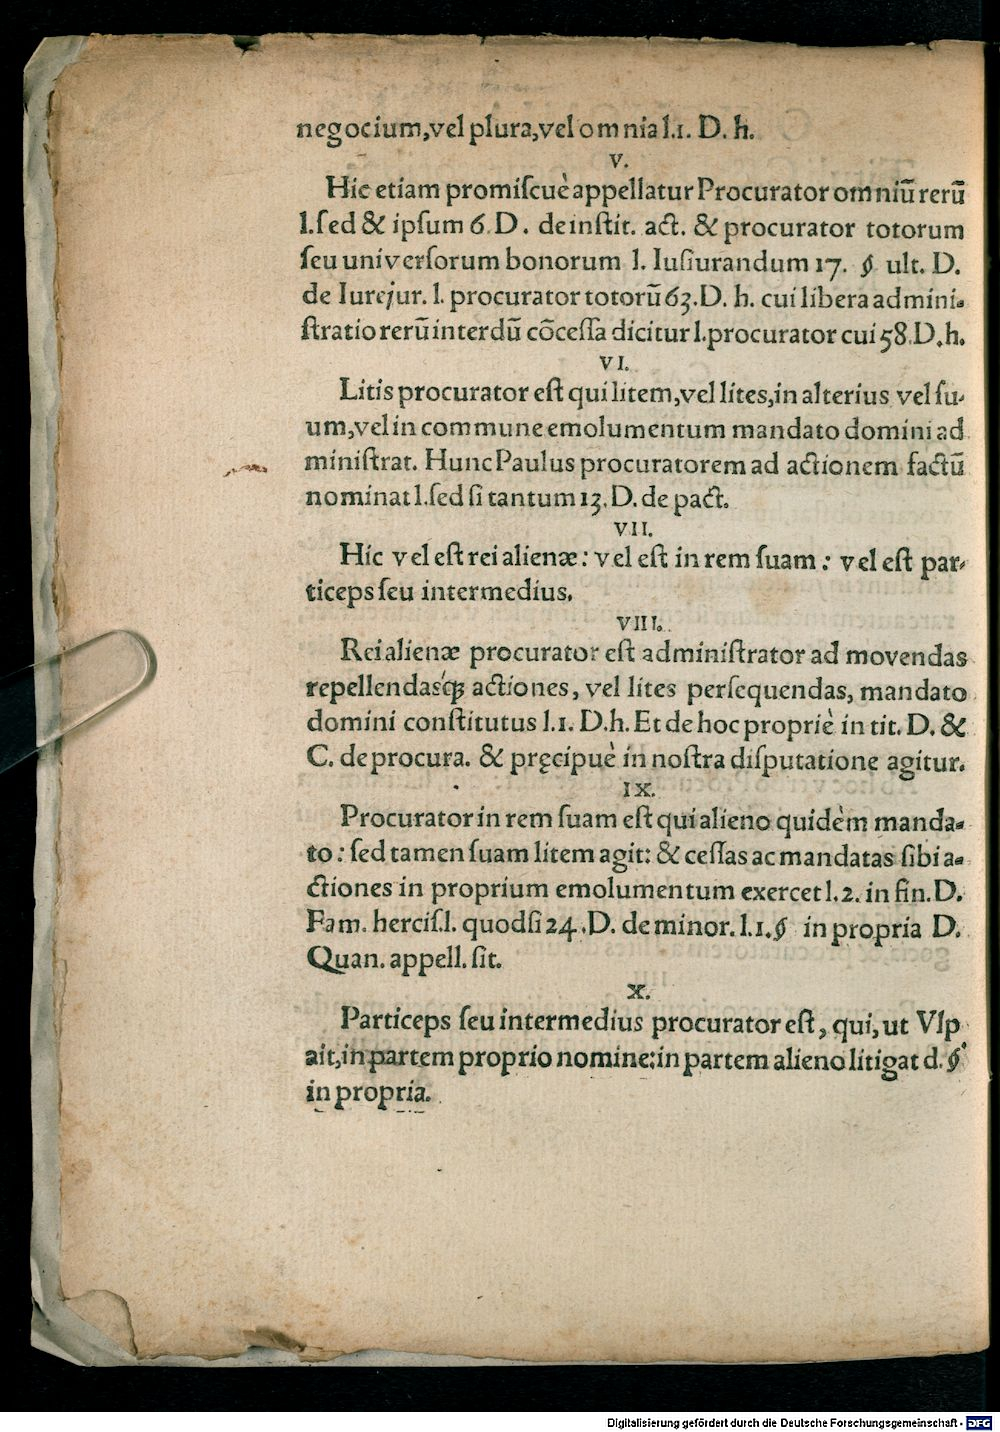 negocium, vel plura, vel omnia l.1. D. h.
V.
Hic etiam promiſcuè appellatur Procurator omniū rerū
l. ſed & ipſum 6 D. de inſtit. act. & procurator totorum
ſeu univerſorum bonorum l. Iuſiurandum 17. § ult. D.
de Iurejur. l. procurator totorū 63. D. h. cui libera admini-
ſtratio rerū interdū cōceſſa dicitur l. procurator cui 58. D. h.
VI.
Litis procurator eſt qui litem, vel lites, in alterius vel ſu-
um, vel in commune emolumentum mandato domini ad
miniſtrat. Hunc Paulus procuratorem ad actionem factū
nominat l. ſed ſi tantum 13. D. de pact.
VII.
Hic vel eſt rei alienæ: vel eſt in rem ſuam: vel eſt par-
ticeps ſeu intermedius.
VIII.
Rei alienæ procurator eſt adminiſtrator ad movendas
repellendasq́; actiones, vel lites perſequendas, mandato
domini conſtitutus l.1. D. h. Et de hoc propriè in tit. D. &
C. de procura. & pręcipuè in noſtra diſputatione agitur.
IX.
Procurator in rem ſuam eſt qui alieno quidèm manda-
to: ſed tamen ſuam litem agit: & ceſſas ac mandatas ſibi a-
ctiones in proprium emolumentum exercet l. 2. in fin. D.
Fam. herciſ. l. quodſi 24. D. de minor. l. 1. § in propria D.
Quan. appell. ſit.
X.
Particeps ſeu intermedius procurator eſt, qui, ut Vlp
ait, in partem proprio nomine: in partem alieno litigat d. §
in propria.
Digitalisierung gefördert durch die Deutsche Forschungsgemeinschaft - DFG